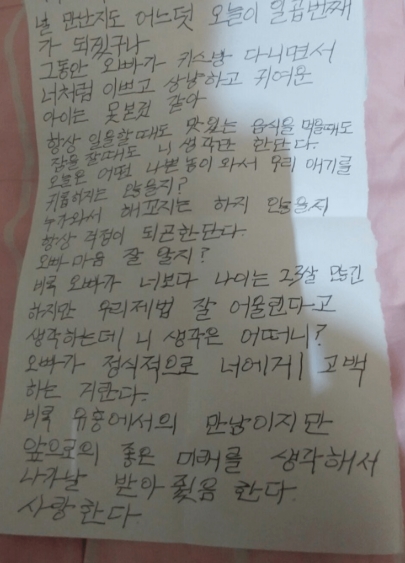 널 만난지도 어느덧 오늘이 일곱번째
가 되겠구나
그동안 오빠가 키스방 다니면서
너처럼 이쁘고 상냥하고 귀여운
아이는 못본것 같아
항상 일을할때도 맛있는 음식을 먹을때도
잠을 잘때도 니 생각만 한단다.
오늘은 어떤 나쁜놈이 와서 우리 애기를
괴롭히지는 않을지?
누가와서 해꼬지는 하지 않을지
항상 걱정이 되곤한단다.
오빠 마음 잘 알지?
비록 오빠가 너보다 나이는 많긴
하지만 우리제법 잘 어울린다고
생각하는데 니 생각은 어떠니?
오빠가 정식적으로 너에게 고백
하는 거란다.
비록 유흥에서의 만남이지만
앞으로의 좋은 미래를 생각해서
나가날 받아줬음 한다.
사랑한다